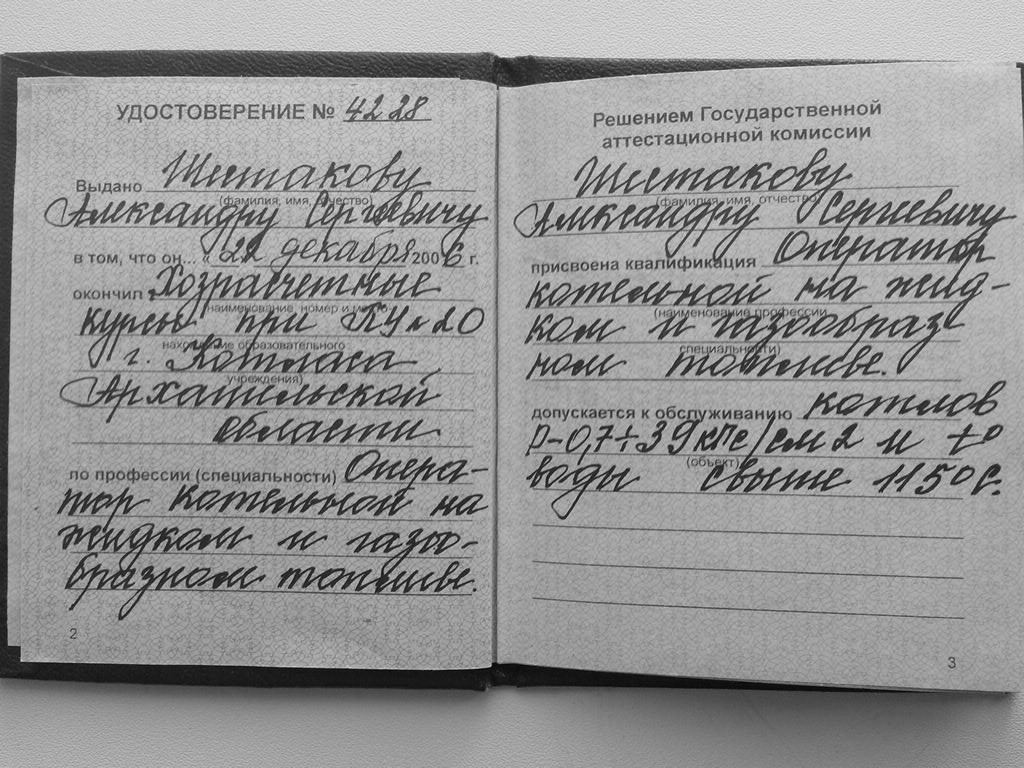 УДОСТОВЕРЕНИЕ № 4228
Выдано Шестакову
(фамилия, имя, отчество)
Александру Сергеевичу
в том, что он... « 22 декабря 2006 г.
окончил Хозрасчетные
наименование, номер и место
курсы при ПУ № 20
нахождение образовательного
г. Котласа
учреждения)
Архангельской
области
по профессии (специальности) Опера-
тор котельной на
жидком и газо-
образном топливе.
2
Решением Государственной
аттестационной комиссии
Шестакову
(фамилия, имя, отчество)
Александру Сергеевичу
присвоена квалификация Оператор
котельной на жид-
(наименование профессии
ком и газообраз-
специальности)
ном топливе.
допускается к обслуживанию котлов
р-0,7÷39 кгс/см2 и t°
(объект)
воды свыше 115°С.
3